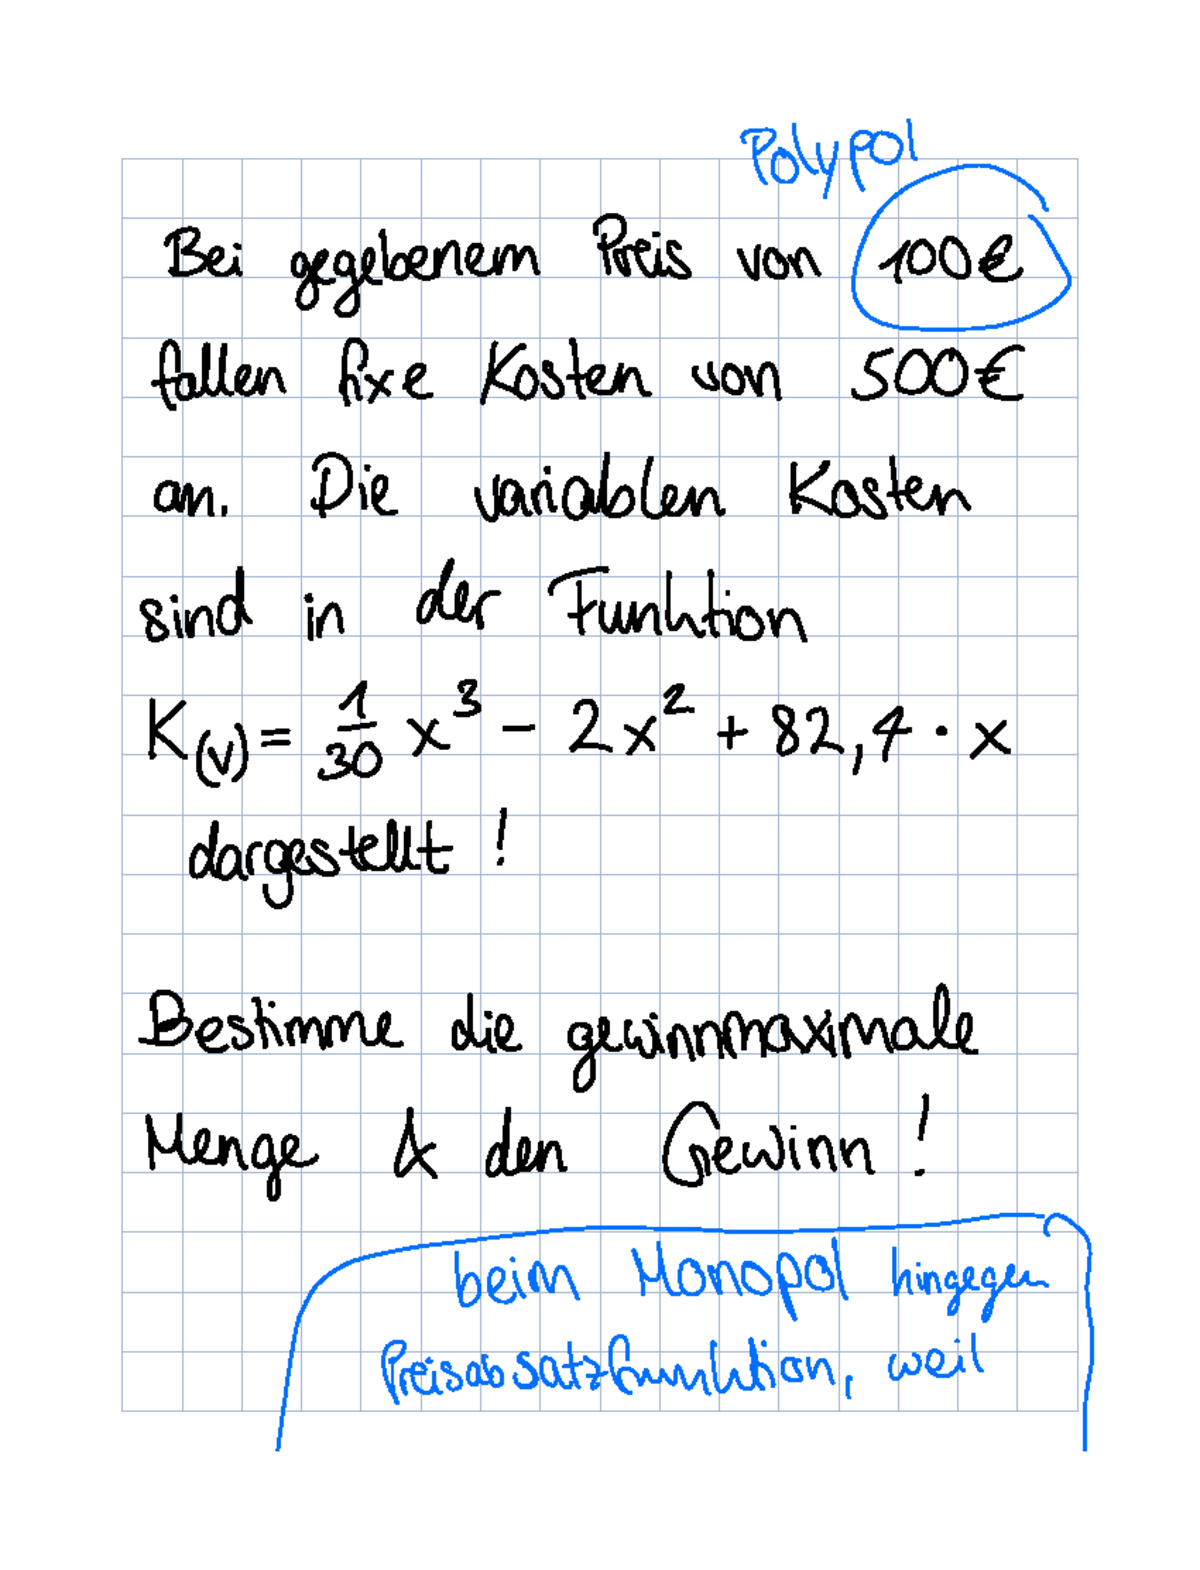 Polypol
Bei gegebenem Preis von 100€
fallen fixe Kosten von 500€
an. Die variablen Kosten
sind in der Funktion
K(v) = 1/30 x³ - 2x² + 82,4 · x
dargestellt!
Bestimme die gewinnmaximale
Menge & den Gewinn!
beim Monopol hingegen
Preisabsatzfunktion, weil